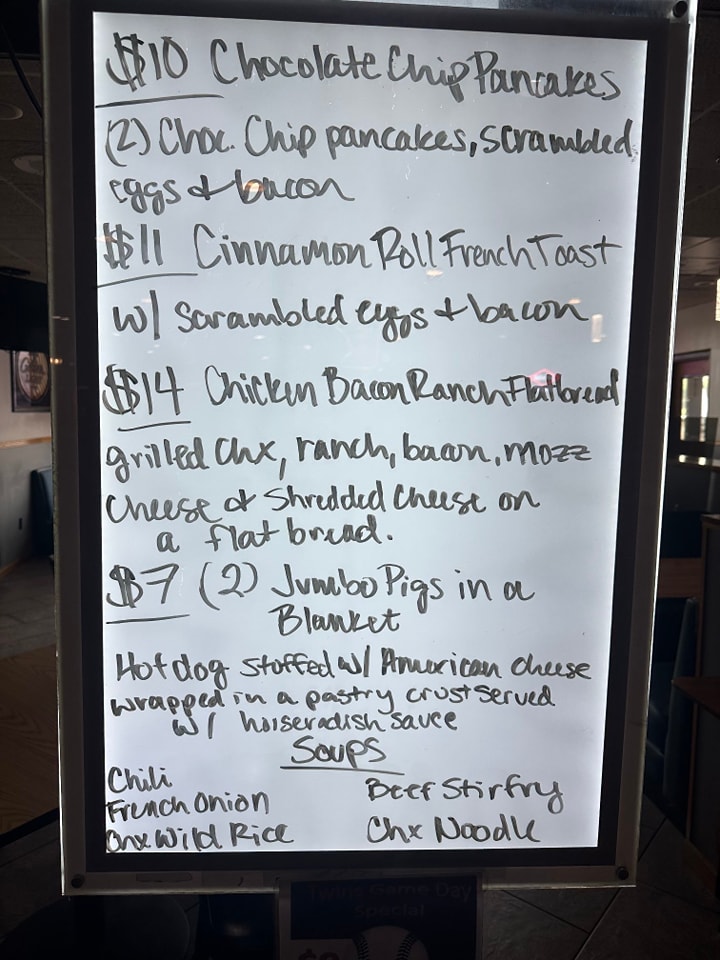 $10 Chocolate Chip Pancakes
(2) Choc. Chip pancakes, scrambled
eggs & bacon
$11 Cinnamon Roll French Toast
w/ scrambled eggs & bacon
$14 Chicken Bacon Ranch Flatbread
grilled chx, ranch, bacon, mozz
cheese & shredded cheese on
a flat bread.
$7 (2) Jumbo Pigs in a
Blanket
Hotdog stuffed w/ American cheese
wrapped in a pastry crust served
w/ horseradish sauce
Soups
Chili
French Onion
Chx Wild Rice
Beef Stirfry
Chx Noodle
Twins Game Day
Special